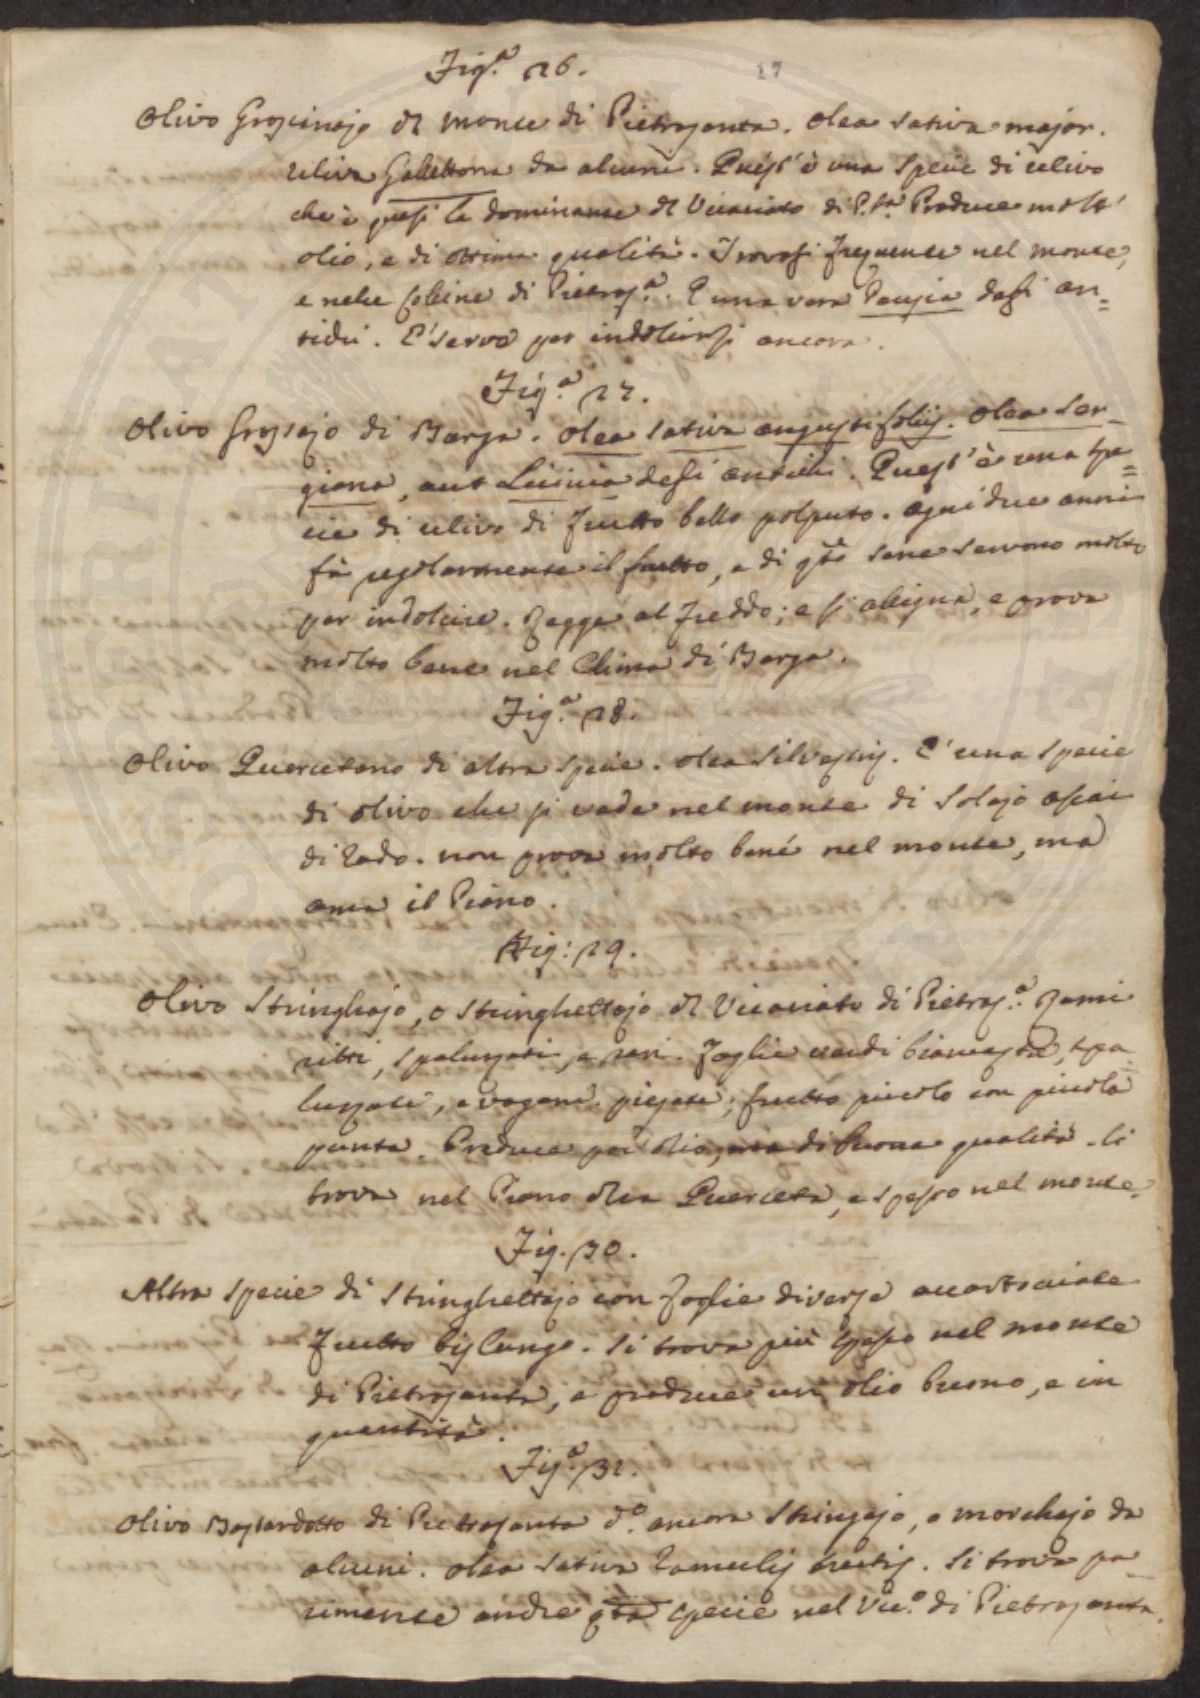 17
Figª. 26.
Olivo Groscinajo del monte di Pietrasanta. Olea sativa major.
Uliva da alcuni. Quest'è una specie di ulivo
che è quasi la dominante del Vicariato di P.ta Produce molt'
olio, e di ottima qualità. Trovasi frequente nel monte,
e nelle colline di Pietrasª. E una vera Pausia dagli an=
tichi. E' serve per indolcirsi ancora.
Figª. 27.
Olivo Grossajo di Barga. Olea sativa angustifolis. Olea Ser-
giana, aut Licinia degli antichi. Quest'è una spe=
cie di ulivo di frutto bello polputo. Ogni due anni
fà regolarmente il frutto, e di qte sene servono molto
per indolcire. Regge al freddo; e si alligna, e prova
molto bene nel Clima di Barga.
Figª. 28.
Olivo Quercetano di altra specie. Olea silvestris. E' una specie
di olivo che si vede nel monte di Solajo assai
di rado. non prova molto bene nel monte, ma
ama il Piano.
Fig: 29.
Olivo Stringhajo, o Stringhettajo del Vicariato di Pietrasª. Rami
ritti, e rari. Foglie verdi biancastre, spa-
e piegate; frutto piccolo con piccola
punta. Produce poi olio, ma di buona qualità. Si
trova nel Piano della Querceta, e spesso nel monte.
Fig. 30.
Altra specie di Stringhettajo con foglie diverse accartociate
Frutto bislungo. Si trova più spesso nel monte
di Pietrasanta, e produce un olio buono, e in
quantità.
Figª. 31.
Olivo Bastardotto di Pietrasanta dº. ancora Stringajo, o morchajo da
alcuni. Olea sativa ramulis erectis. Si trova pa-
rimente anche qta specie nel Vicº. di Pietrasanta.